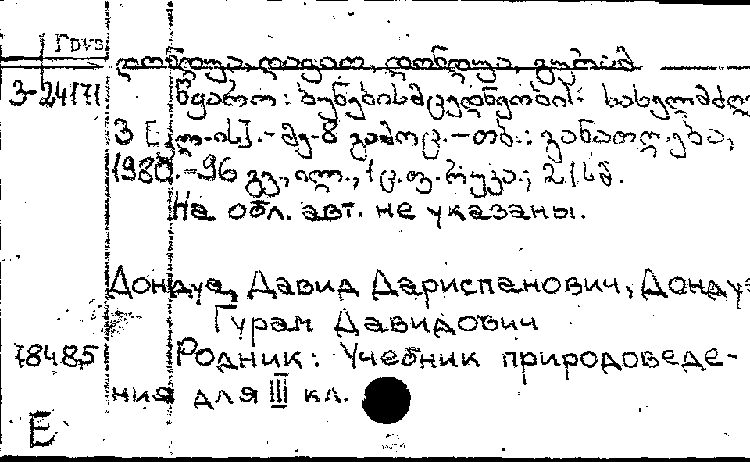 Груз
დონდუა, დავით, დონდუა, გურამ
3-24171 წყარო: ბუნებისმცოდნეობის სახელმძღ
3 [კლ-ის].-მე-8 გამოც.-თბ.: განათლება,
1980.-96 გვ., ილ., 1 ც.ფ. რუკა.; 21 სმ.
На обл. авт. не указаны.
Дондуа, Давид Дариспанович, Дондуа
Гурам Давидович
78485 Родник: Учебник природоведе-
ния для III кл.
E